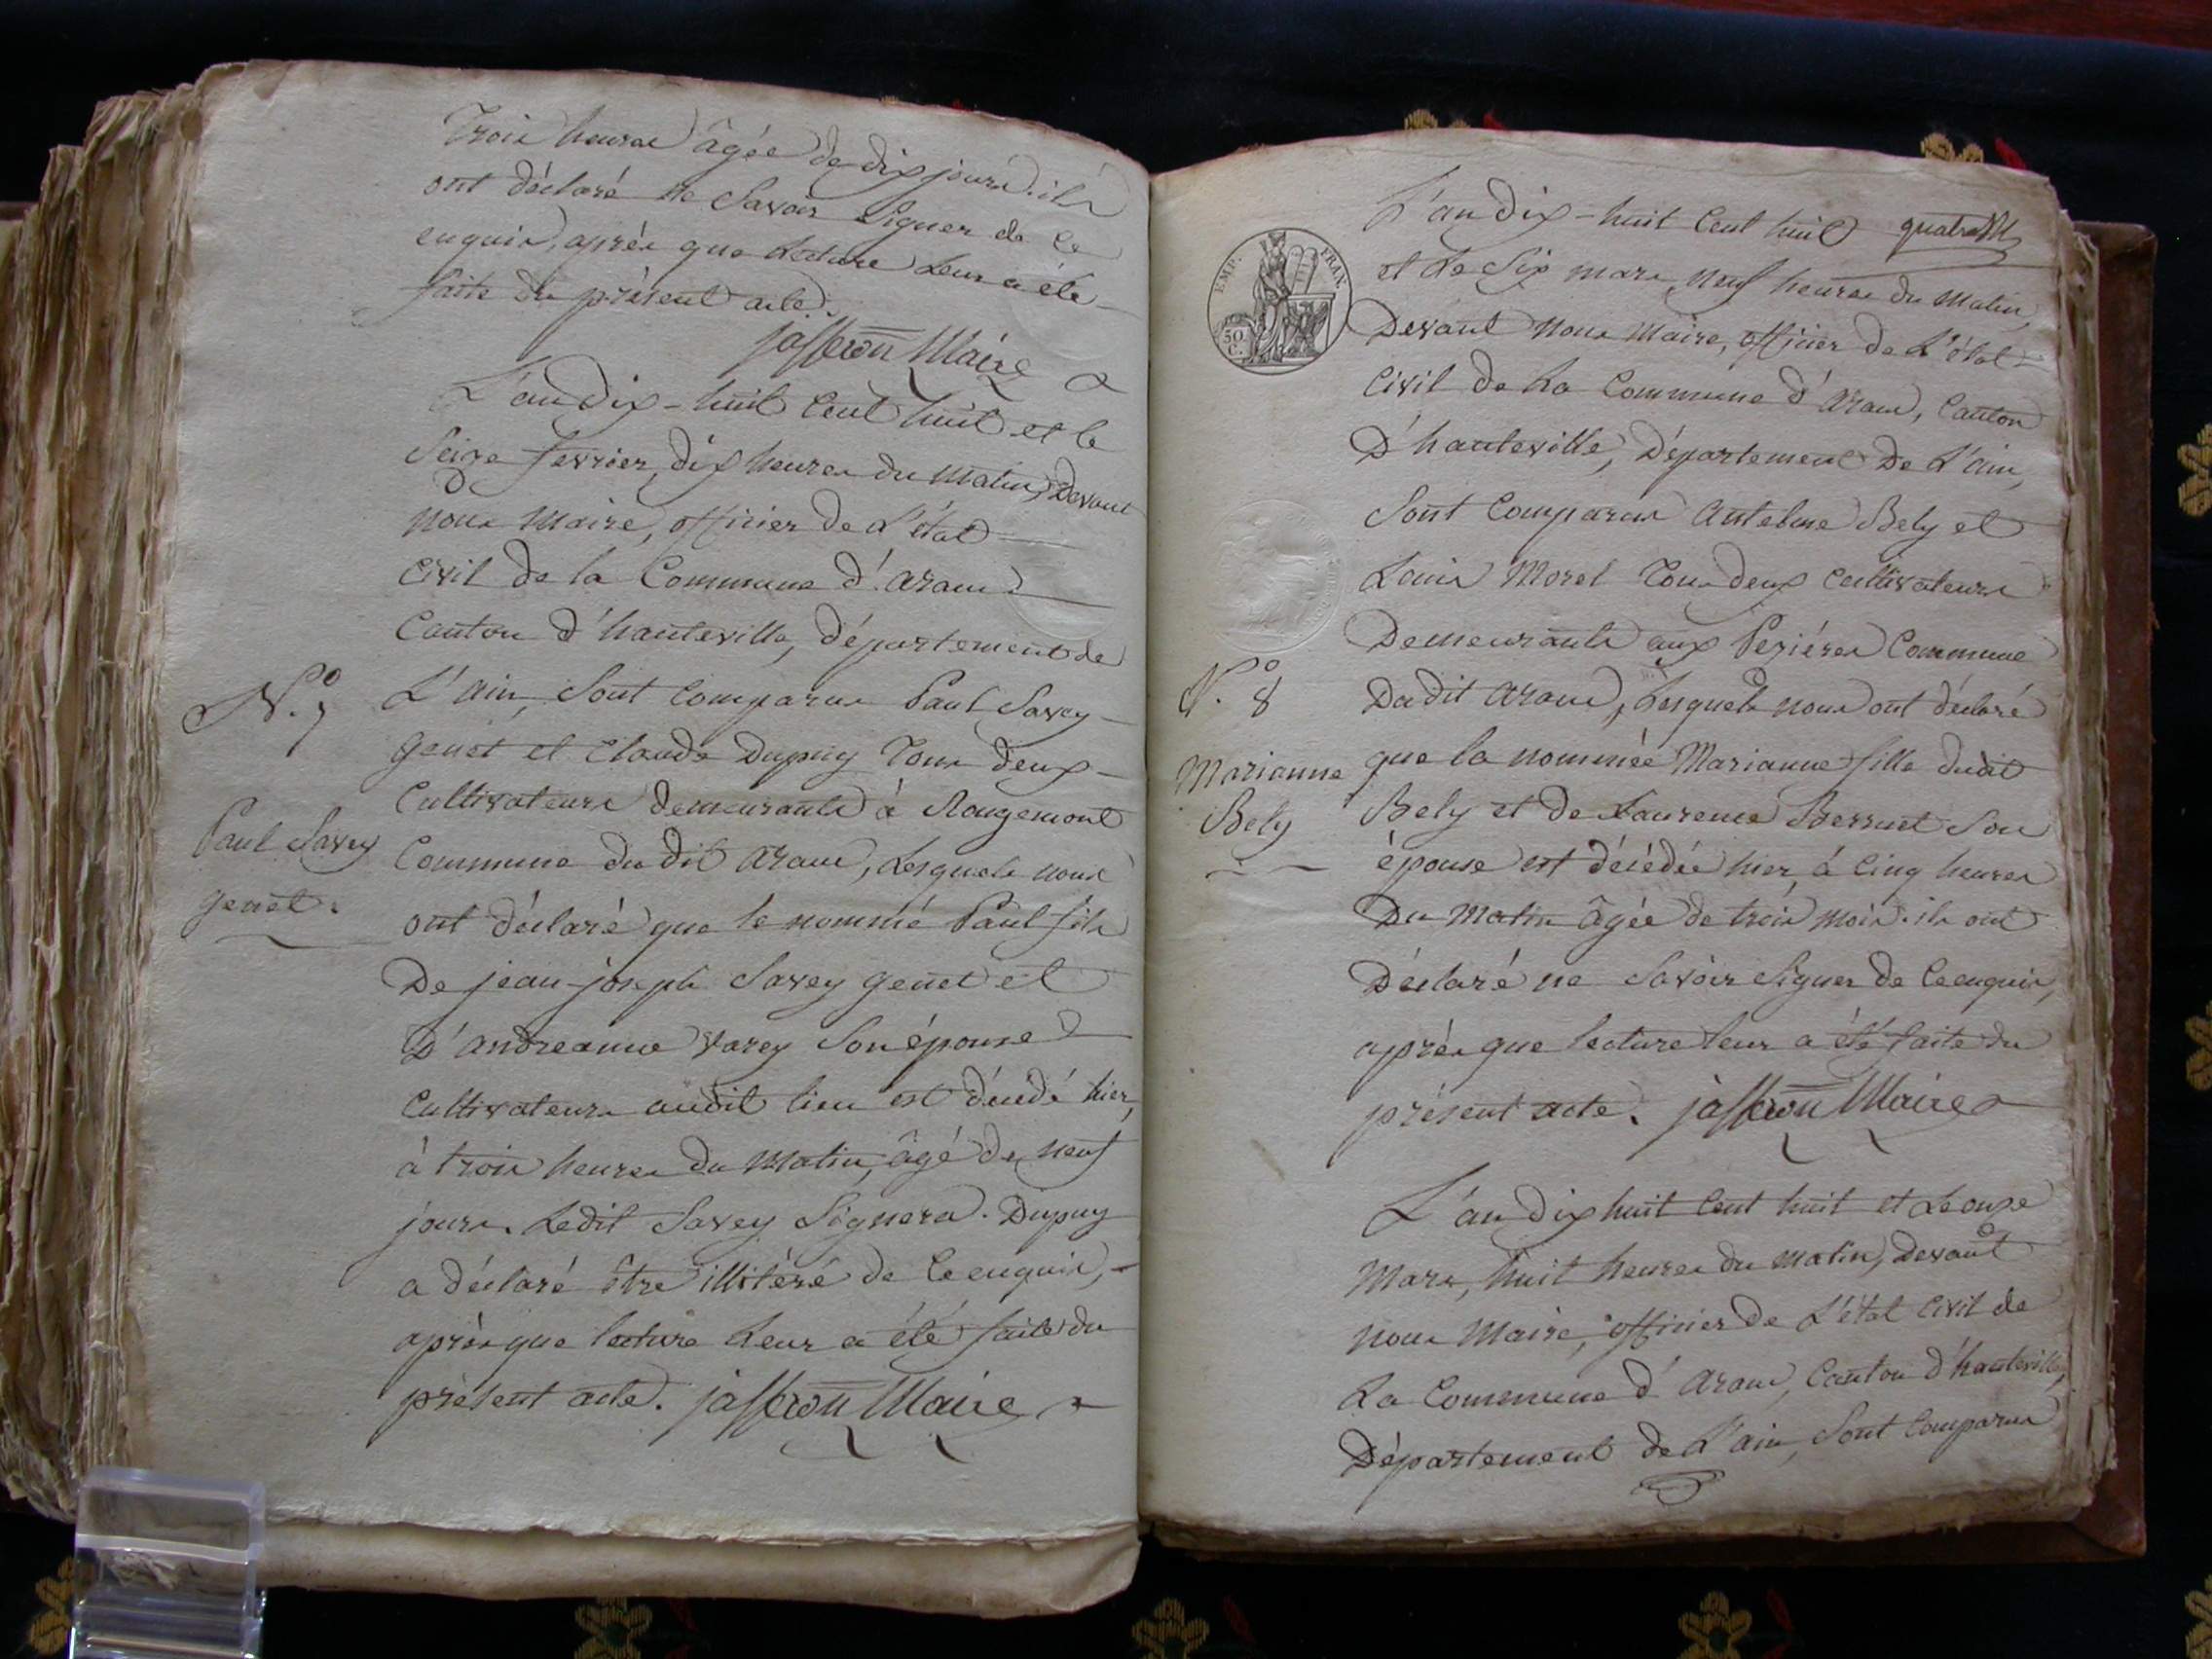 Trois heures âgée de dix jours. ils
ont déclaré ne Savoir Signer de ce
enquis, après que Lecture Leur a été
faite du présent acte.
jafferon Maire
L'an Dix-huit Cent huit et le
Seize fevrier, dix heures du matin, Devant
nous Maire, officier de L'état
Civil de la Commune d'aranc
Canton d'hauteville, département de
L'ain, Sont Comparus Paul Savey
genet et Claude Dupuy Tous deux
Cultivateurs demeurants à Rougemont
Commune du dit aranc, Lesquels nous
ont déclaré que le nommé Paul fils
De jean-joseph Savey genet et
D'andreanne Varey Son épouse
Cultivateurs audit lieu est décédé hier,
à trois heures du Matin, âgé de neuf
jours. Ledit Savey Signera. Dupuy
a déclaré être illitéré de Ce enquis,
après que lecture Leur a été faite du
présent acte. jafferon Maire
N.° 7
Paul Savey
genet.
quatre
L'an Dix-huit Cent huit
et Le Six mars, neuf heures du Matin,
Devant nous Maire, officier de L'état
Civil de La Commune d'aranc, Canton
D'hauteville, Département De L'ain,
Sont Comparus Antelme Bely et
Louis Morel Tous deux Cultivateurs
Demeurants aux Pezières Commune
Dudit aranc, Lesquels nous ont déclaré
que la nommée Marianne fille dudit
Bely et de Laurence Berruet Son
épouse est décédée hier, à Cinq heures
Du Matin âgée de trois mois. ils ont
Déclaré ne Savoir Signer de Ce enquis,
après que lecture leur a été faite du
présent acte. jafferon Maire
N.° 8
Marianne
Bely
L'an Dix huit Cent huit et Le onze
Mars, huit heures du matin, Devant
nous Maire, officier de L'état Civil de
La Commune d'aranc, Canton d'hauteville,
Département de L'ain, Sont Comparus
EMP. FRAN.
50
C.